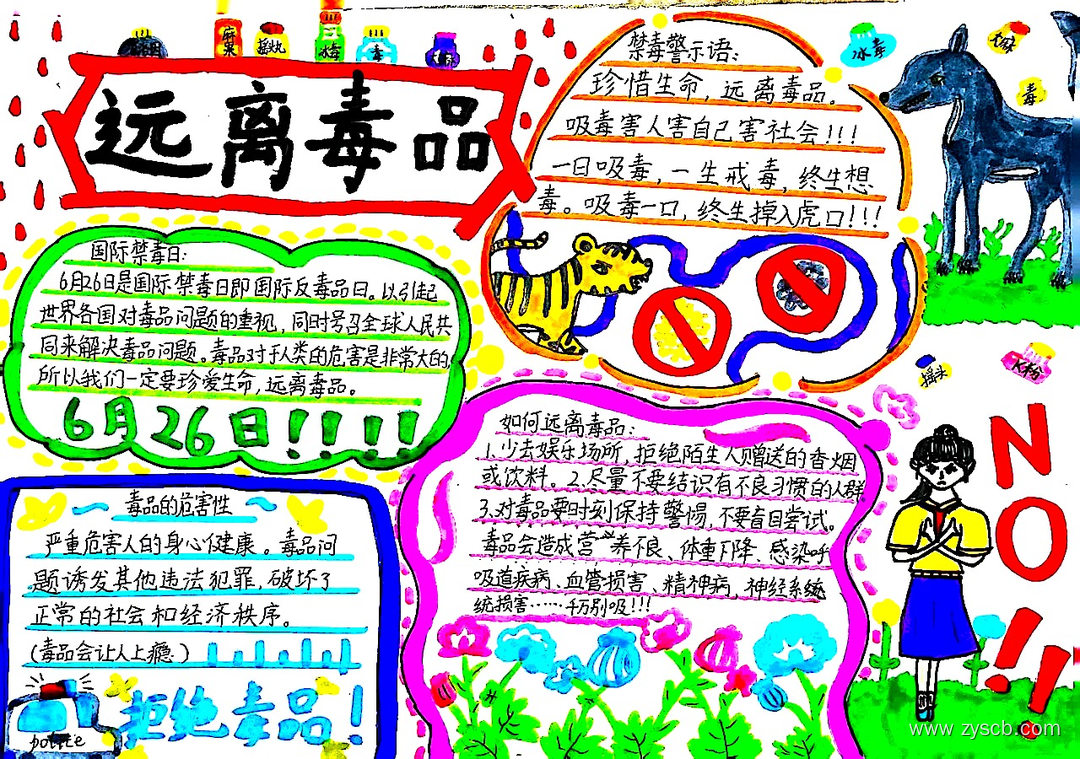 麻果
摇丸
冰毒
毒
远离毒品
禁毒警示语:
珍惜生命,远离毒品。
吸毒害人害自己害社会!!!
一日吸毒,一生戒毒,终生想
毒。吸毒一口,终生掉入虎口!!!
冰毒
大麻
毒
国际禁毒日:
6月26日是国际禁毒日即国际反毒品日。以引起
世界各国对毒品问题的重视,同时号召全球人民共
同来解决毒品问题。毒品对于人类的危害是非常大的,
所以我们一定要珍爱生命,远离毒品。
6月26日!!!!
摇头
K粉
如何远离毒品:
1.少去娱乐场所,拒绝陌生人赠送的香烟
或饮料。2.尽量不要结识有不良习惯的人群
3.对毒品要时刻保持警惕,不要盲目尝试。
毒品会造成营养不良、体重下降、感染呼
吸道疾病、血管损害、精神病,神经系统
统损害……千万别吸!!!
毒品的危害性
严重危害人的身心健康。毒品问
题诱发其他违法犯罪,破坏了
正常的社会和经济秩序。
(毒品会让人上瘾.)
police
拒绝毒品!
NO!!
www.zyscb.com